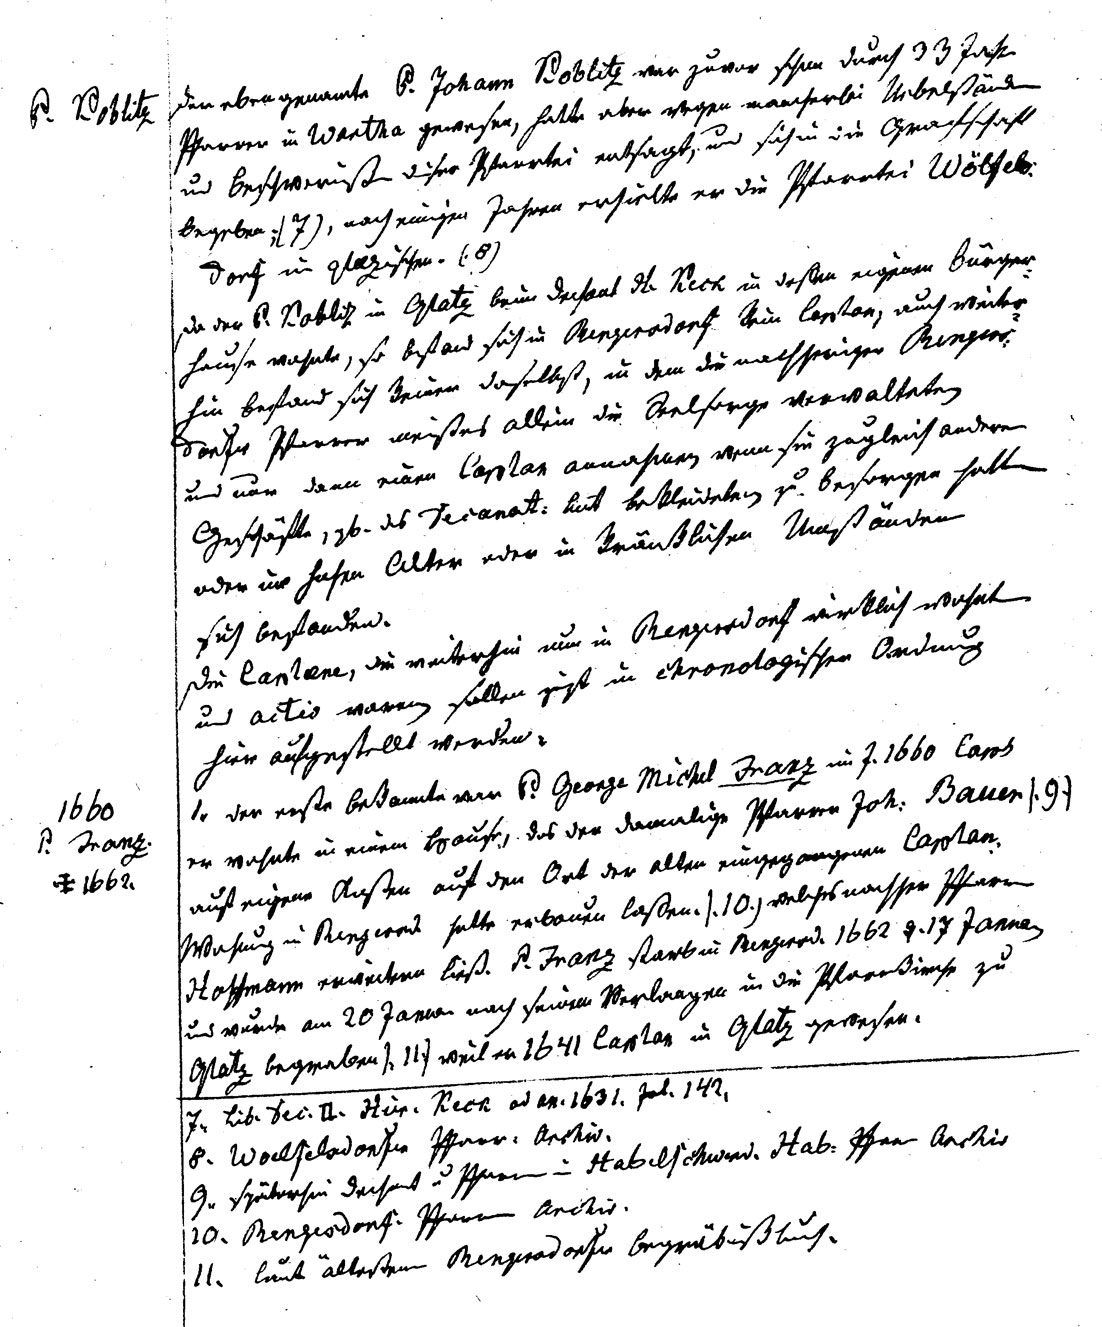 P. Koblitz
der eben genante P. Johann Koblitz war zuvor schon durch 33 Jahr
Pfarrer in Wartha gewesen, hatte aber wegen mancherlei Uebelstände
und Beschwerniß dieser Pfarrtei entsagt, und sich in die Grafschaft
begeben; (7), nach einigen Jahren erhielte er die Pfarrtei Wölfels-
dorf im glazischen. (8)
da der P. Koblitz in Glatz beim Dechant H. Keck in deßen eigenen Bürger-
hause wohnte, so befand sich in Rengersdorf kein Caplan, auch weiter-
hin befand sich keiner daselbst, in dem die nachherigen Rengers-
dorfer Pfarrer meistes allein die Seelsorge verwalteten
und nur dann einen Caplan annahmen wenn sie zugleich andere
Geschäfte, zb. das Decanat: Amt bekleideten zu besorgen hatten
oder im hohen Alter oder in kränklichen Umständen
sich befanden.
Die Caplane, die weiterhin nun in Rengersdorf wirklich wohnt
und activ waren sollen jezt in chronologischer Ordnung
hier aufgestellt werden.
1660
P. Franz.
1662.
1. der erste bekannte war P. George Michel Franz im J. 1660
er wohnte in einem Hause, das der damalige Pfarrer Joh: Bauer (.9.)
auf eigene Kosten auf den Ort der alten eingegangenen Caplan.
Wohnung in Rengersd. hatte erbauen laßen. (.10.) welches nachher Pfarrer
Hoffmann erweitern ließ. P. Franz starb in Rengersd. 1662 d. 17 Januar
und wurde am 20 Januar nach seinem Verlangen in die Pfarrkirche zu
Glatz begraben (.11.) weil er 1641 Caplan in Glatz gewesen.
7. Lib. Dec. II. Hier. Keck ad an. 1631. fol. 142.
8. Woelfelsdorfer Pfarr. Archiv.
9. späterhin Dechant u Pfarrer in Habelschwerd. Hab: Pfarr Archiv
10. Rengersdorf. Pfarr Archiv.
11. laut ältestem Rengersdorfer Begräbnißbuch.